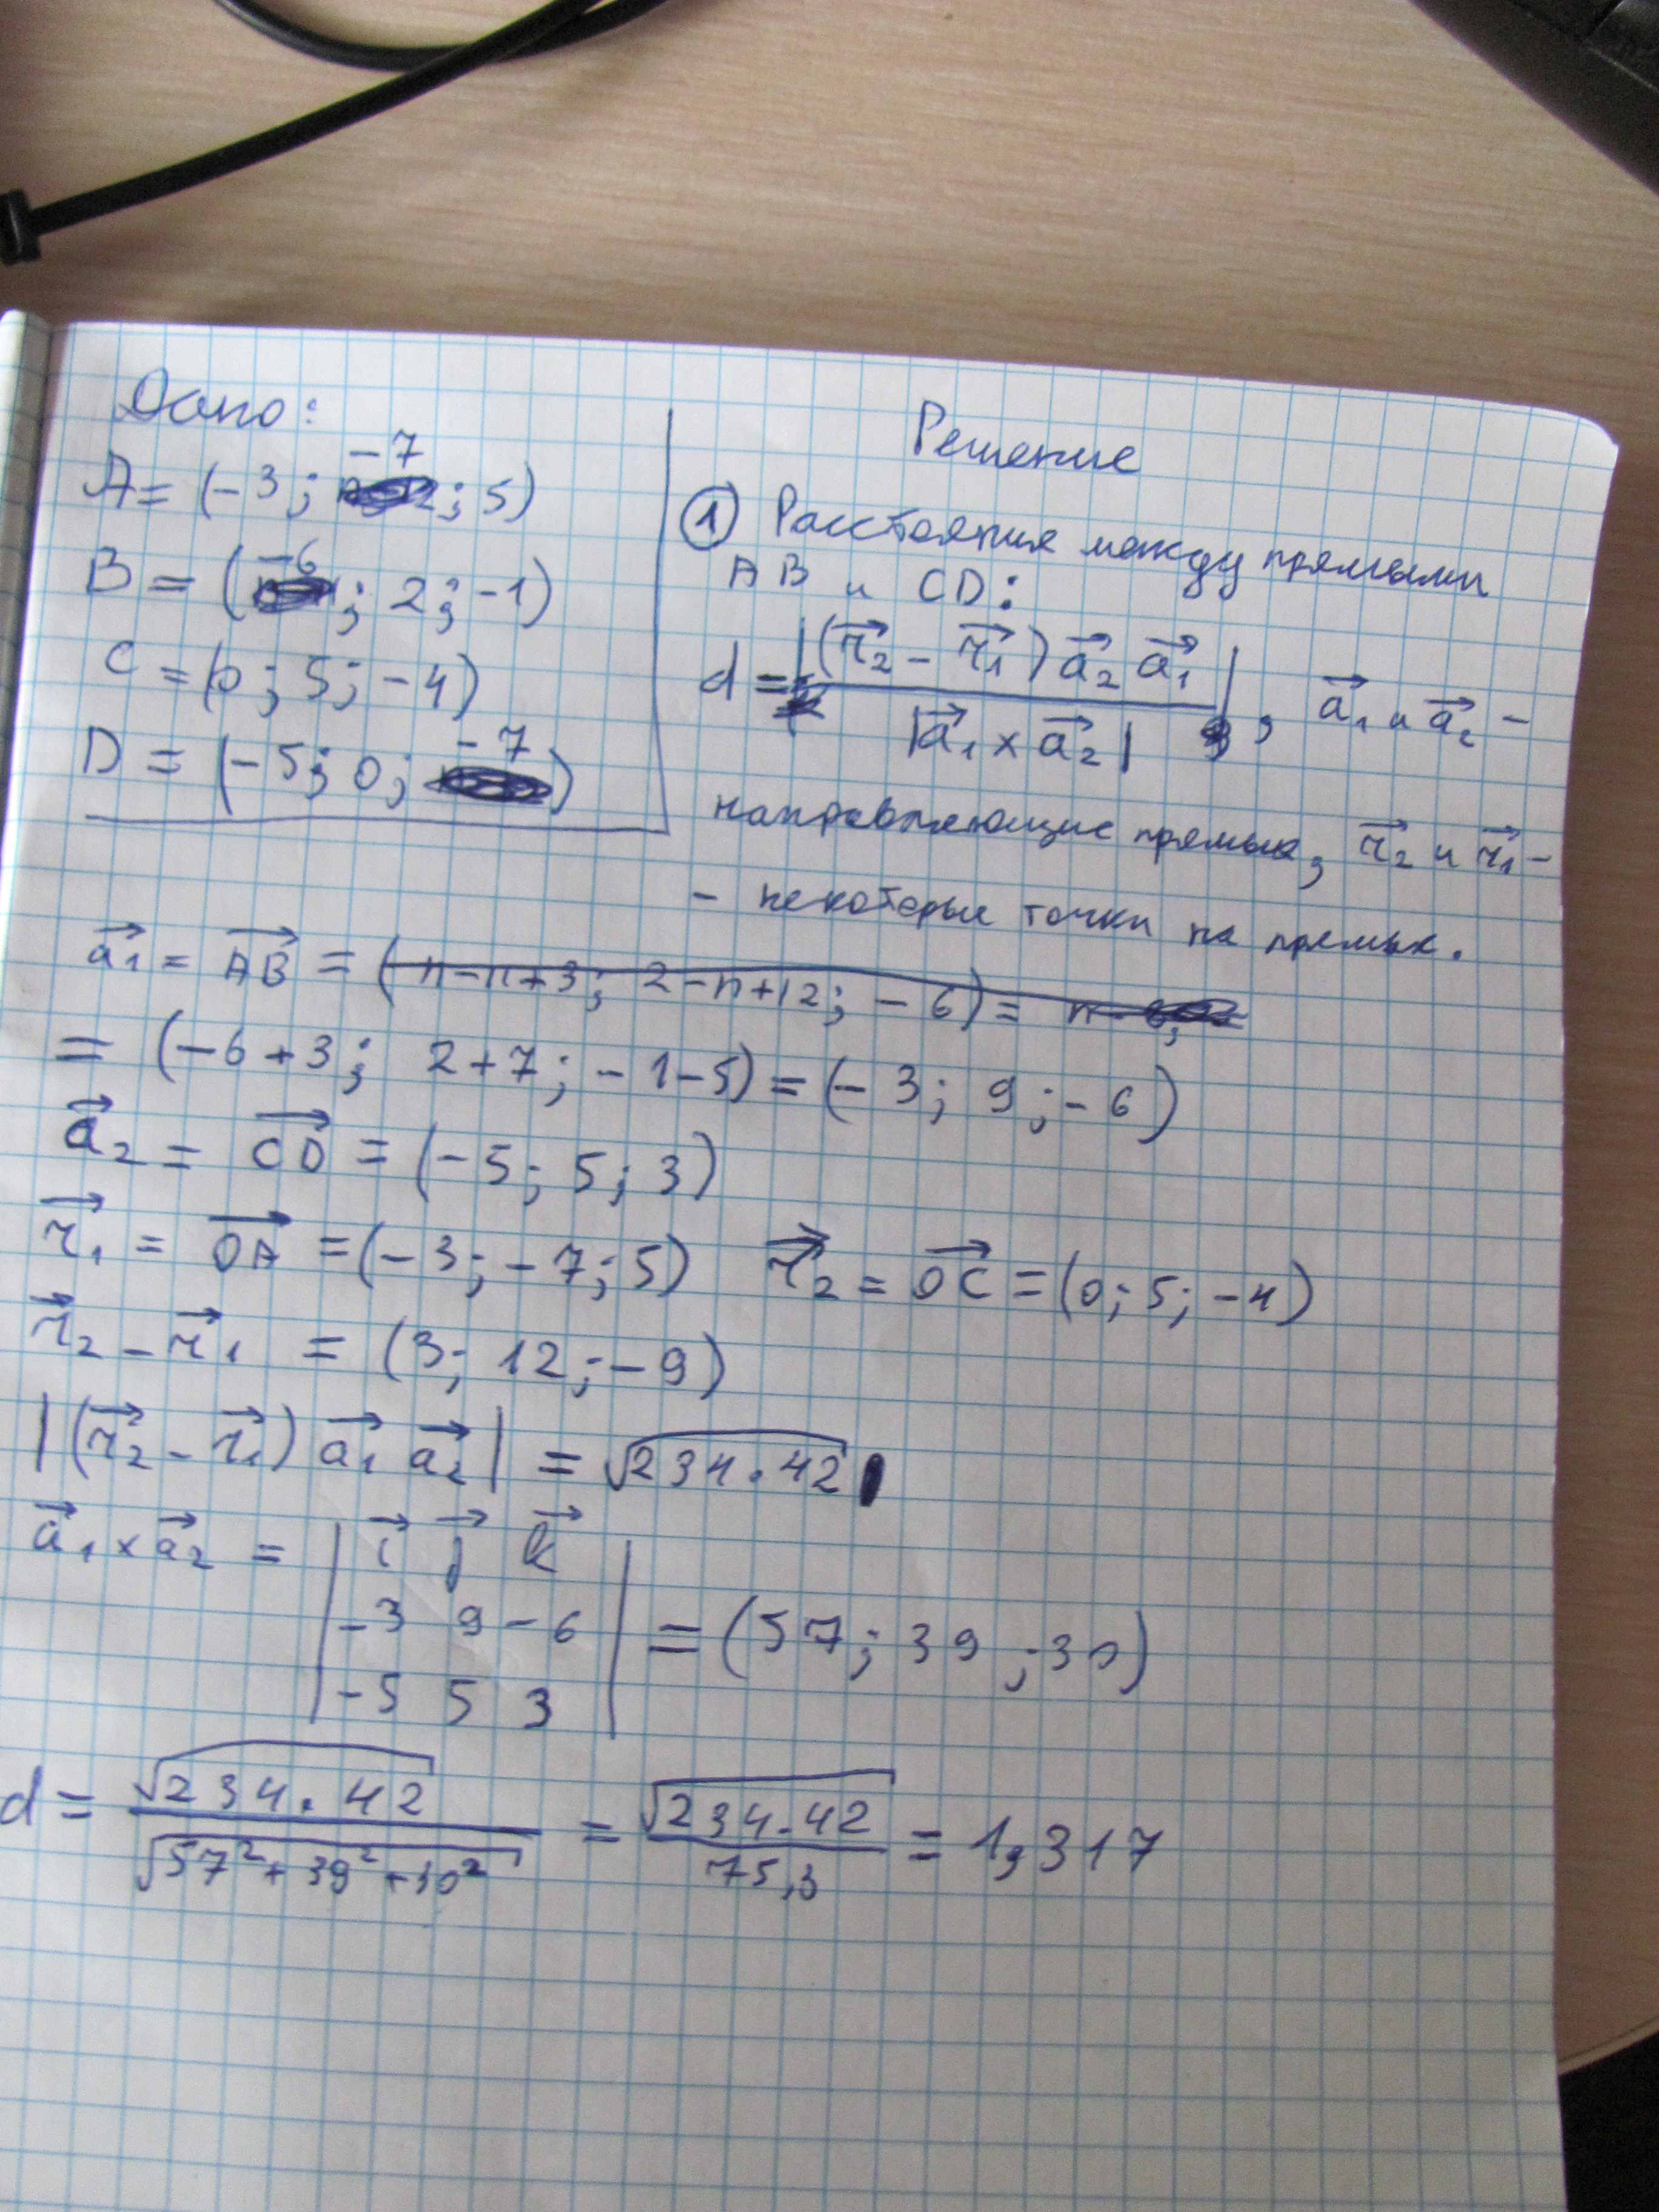 Дано:
A = (-3; -7; 5)
B = (-6; 2; -1)
C = (0; 5; -4)
D = (-5; 0; -7)
Решение
① Расстояния между прямыми
AB и CD:
d = |(r₂ - r₁) a₂ a₁| / |a₁ × a₂|, a₁ и a₂ -
направляющие прямых, r₂ и r₁ -
- некоторые точки на прямых.
a₁ = AB = (n-n+3; 2-n+12; -6) = n-6;
= (-6+3; 2+7; -1-5) = (-3; 9; -6)
a₂ = CD = (-5; 5; 3)
r₁ = OA = (-3; -7; 5) r₂ = OC = (0; 5; -4)
r₂ - r₁ = (3; 12; -9)
|(r₂ - r₁) a₁ a₂| = √234.42
a₁ × a₂ = | i j k
-3 9 -6 | = (57; 39; 30)
-5 5 3
d = √234.42 / √57² + 39² + 30² = √234.42 / 75,3 = 1,317